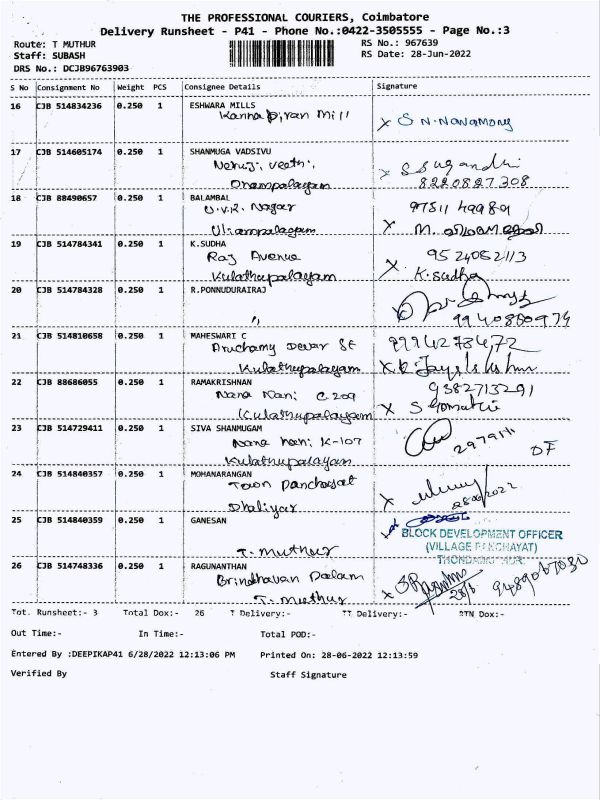 THE PROFESSIONAL COURIERS, Coimbatore
Delivery Runsheet - P41 - Phone No.:0422-3505555 - Page No.:3
Route: T MUTHUR RS No.: 967639
Staff: SUBASH RS Date: 28-Jun-2022
DRS No.: DCJB96763903
S No Consignment No Weight PCS Consignee Details Signature
16 CJB 514834236 0.250 1 ESHWARA MILLS
Mill X S N.
17 CJB 514605174 0.250 1 SHANMUGA VADSIVU
Nehuji veethi, X S Sugandhi
Onampalayam 8220827308
18 CJB 88490657 0.250 1 BALAMBAL
U.V.R. Nagar
Uliampalayam X M.
19 CJB 514784341 0.250 1 K.SUDHA
Raj Avenue 9524052113
Kulathupalayam X K.sudha
20 CJB 514784328 0.250 1 R.PONNUDURAIRAJ
"
21 CJB 514810658 0.250 1 MAHESWARI C
Aruchamy Devar St 9994273472
Kulathupalayam
22 CJB 88686055 0.250 1 RAMAKRISHNAN
Nana Nani C209 9382713291
Kulathupalayam X S Gomathi
23 CJB 514729411 0.250 1 SIVA SHANMUGAM
Nana nani K-107
Kulathupalayam
24 CJB 514840357 0.250 1 MOHANARANGAN
Town Panchayat
Dhaliyur X 28/6/2022
25 CJB 514840359 0.250 1 GANESAN
BLOCK DEVELOPMENT OFFICER
(VILLAGE PANCHAYAT)
T. Muthur THONDAMUTHUR
26 CJB 514748336 0.250 1 RAGUNANTHAN
Brindhavan 9489067030
T. Muthur X 28/6
Tot. Runsheet:- 3 Total Dox:- 26 T Delivery:- TT Delivery:- RTN Dox:-
Out Time:- In Time:- Total POD:-
Entered By :DEEPIKAP41 6/28/2022 12:13:06 PM Printed On: 28-06-2022 12:13:59
Verified By Staff Signature